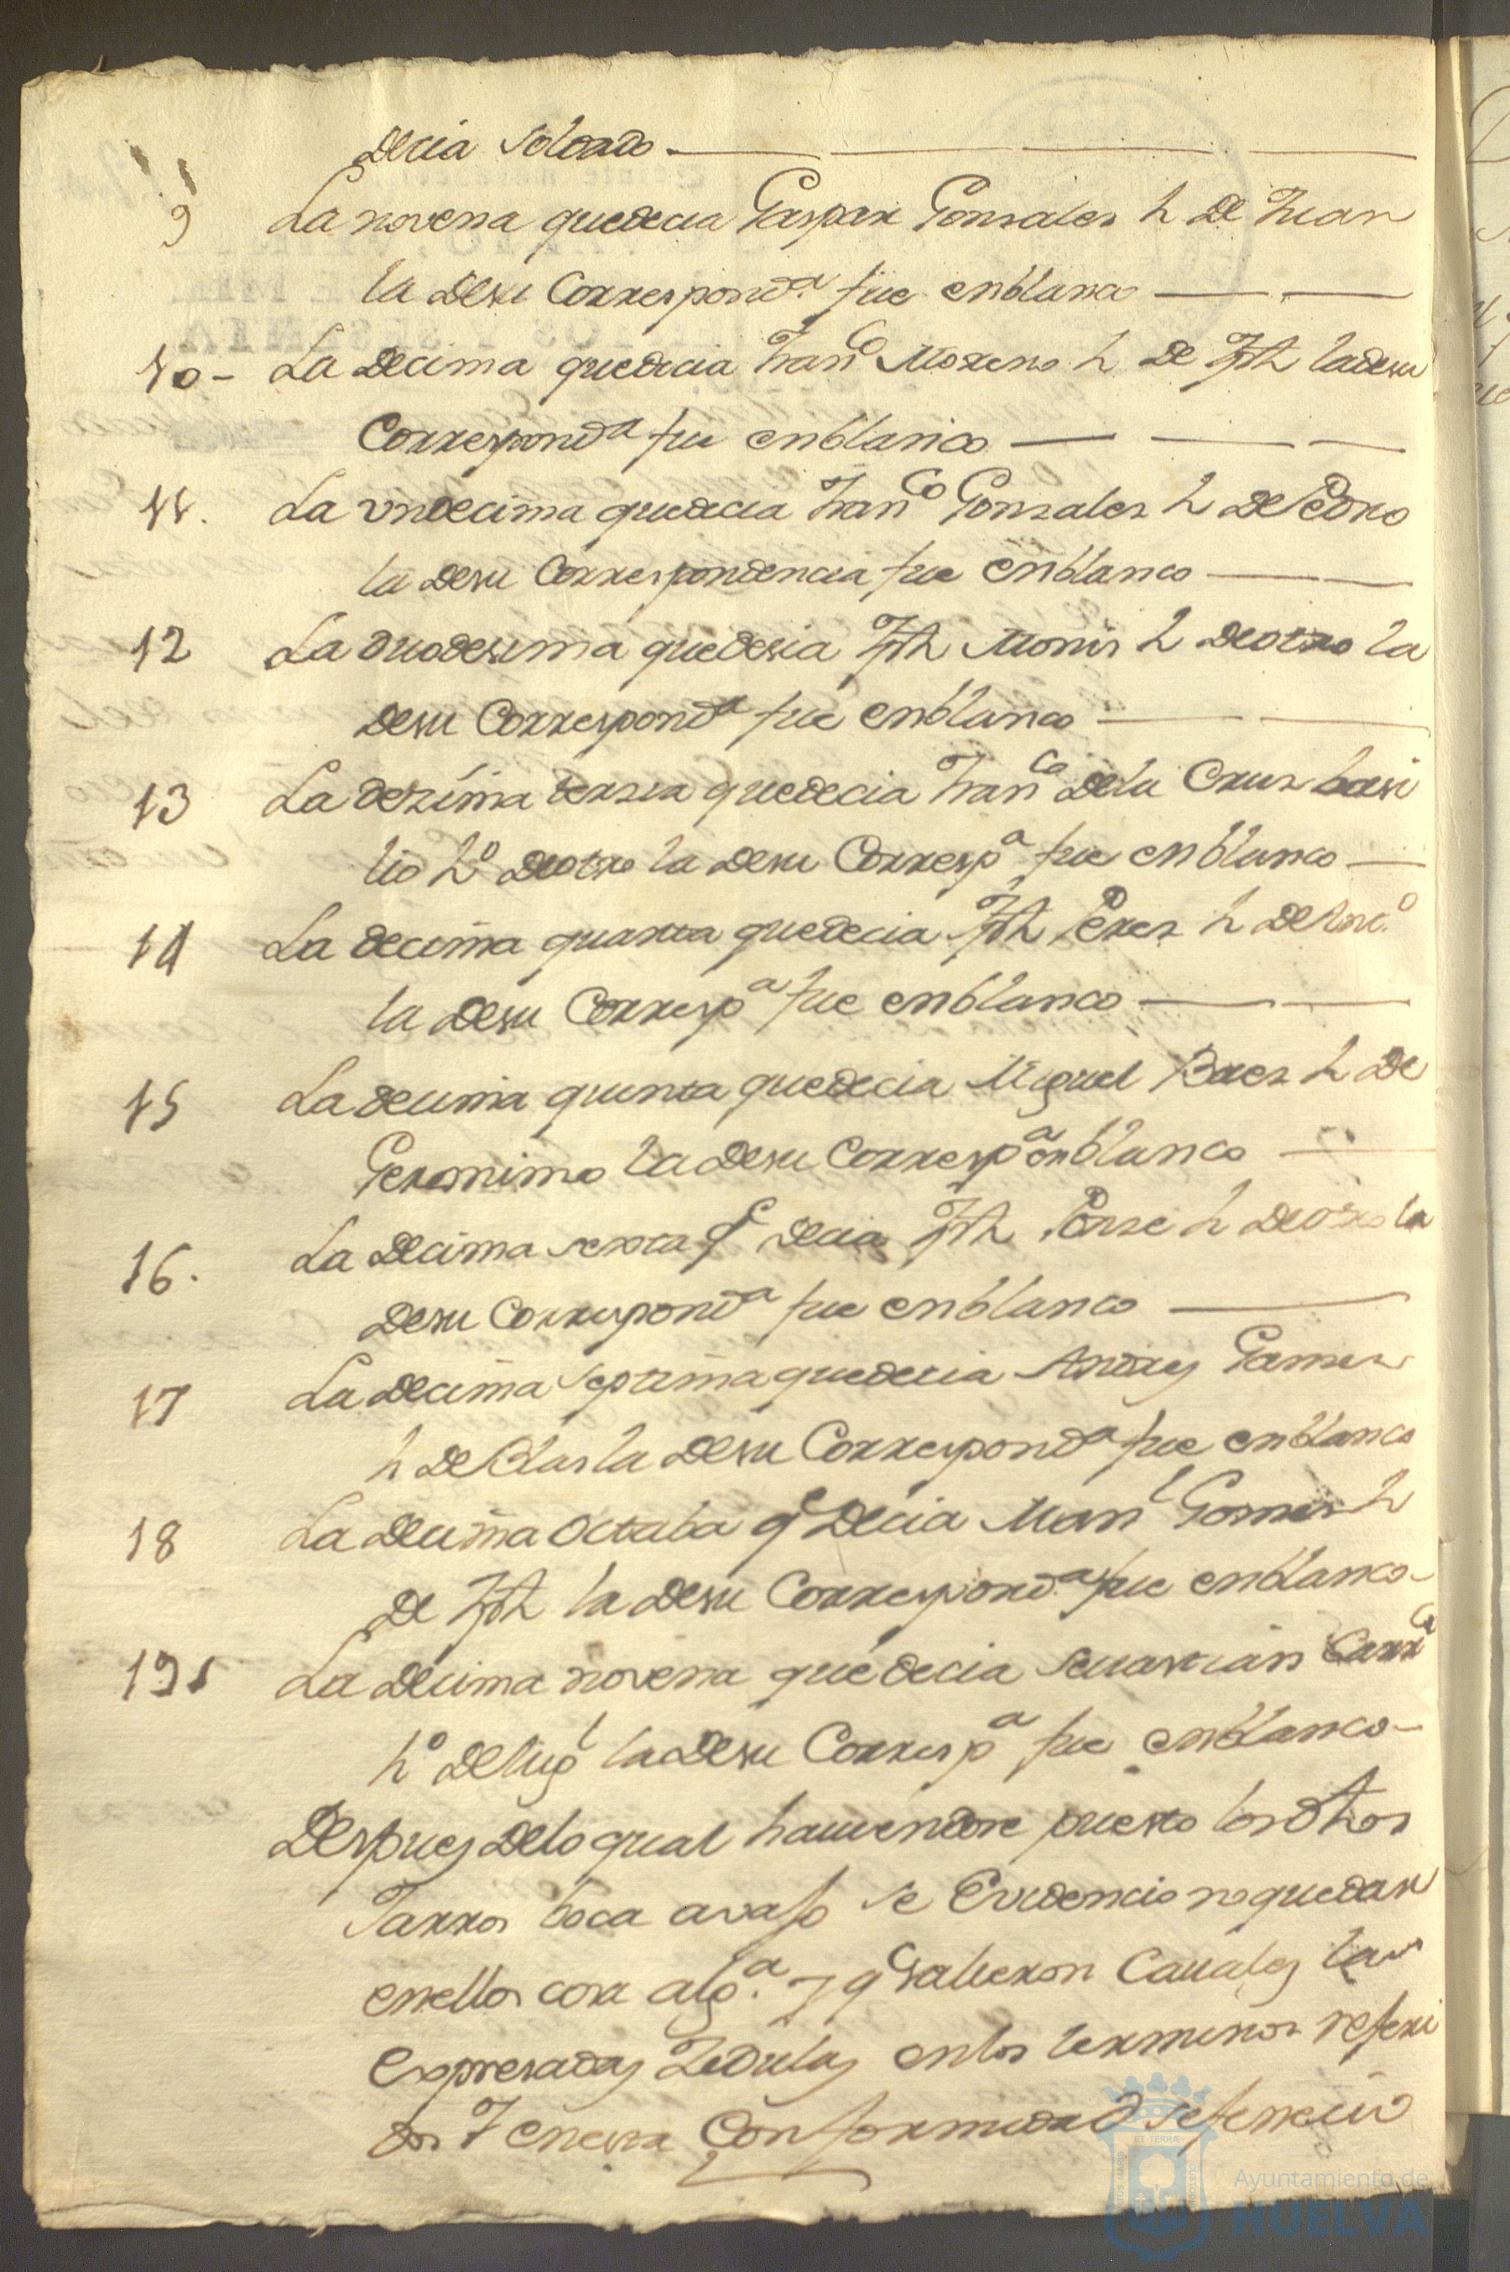 Decia Soldado
9 La novena quedecia Gaspar Gonsales h De Juan
la Desu Correspond.a fue enblanco
10 - La Decima quedecia Fran.co Moreno h De Jph ladesu
Correspond.a fue enblanco
11. La undecima quedecia Fran.co Gonsales h De Pedro
la Desu Correspondencia fue enblanco
12 La duodesima quedesia Jph Monis h Deotro la
Desu Correspond.a fue enblanco
13 La dezima tersia quedecia Fran.co Dela Crus basi
lio h.o Deotro la Desu Corresp.a fue enblanco
14 La decima quarta quedecia Jph Peres h De
la Desu Corresp.a fue enblanco
15 La decima quinta quedecia Miguel Baez h De
Geronimo la Desu Corresp.a enblanco
16. La Decima sexta q.e Decia Jph Ponse h Deotro la
Desu Correspond.a fue enblanco
17 La Decima septima quedecia Andres
h De Blas la Desu Correspond.a fue enblanco
18 La Decima Octaba q.e Decia Man.l Gomes h
De Jph la Desu Correspond.a fue enblanco
19 La Decima novena quedecia Seuastian
h.o De la Desu Corresp.a fue enblanco
Despues Delo qual hauiendose puesto los dhos
Jarros boca avajo se Evidencio noquedar
enellos cosa alg.a y q.e salieron Cauales las
Expresadas Zedulas enlos terminos referi
dos Y enesta Conformidad sefenecio
Ayuntamiento de
HUELVA